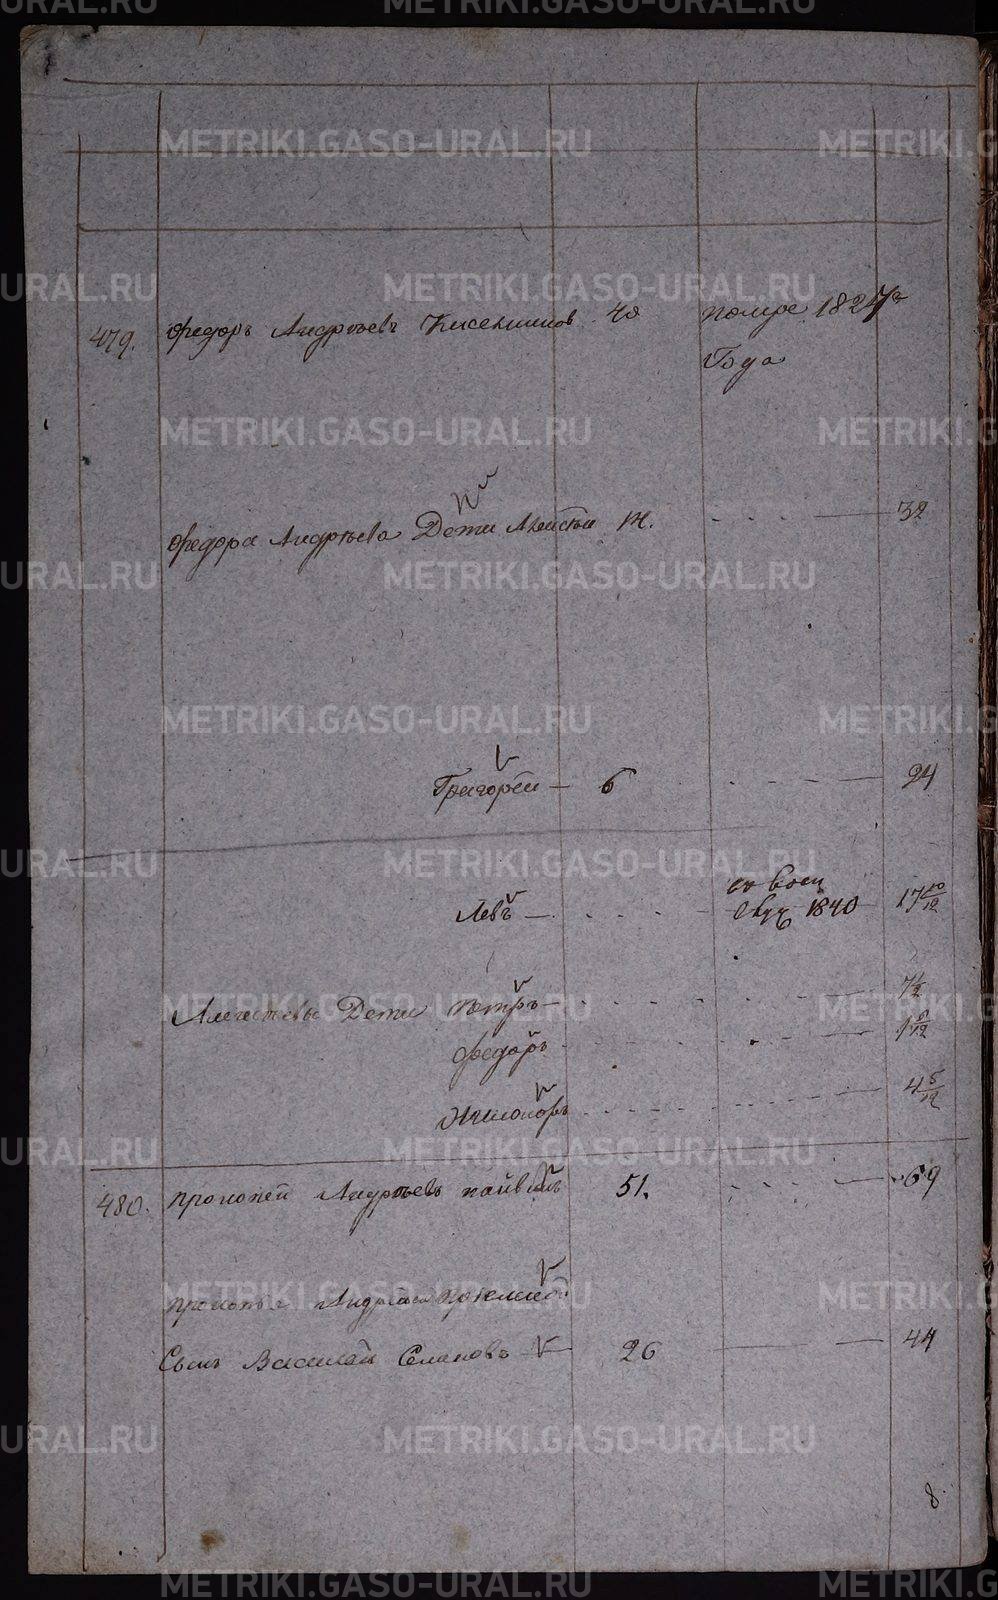 METRIKI.GASO-URAL.RU
479. Федоръ Андреевъ 40 помре 1827го
Года
Федора Андреева Дети 14. 32
Григорей 6 24
Левъ 1840 17 10/12
Дети Петръ 7 1/2
Федоръ
Никаноръ 4 5/12
480. Прокопей Андреевъ 51. 69
Прокопья Андреева
Сынъ Василей Семеновъ 26 44
8.